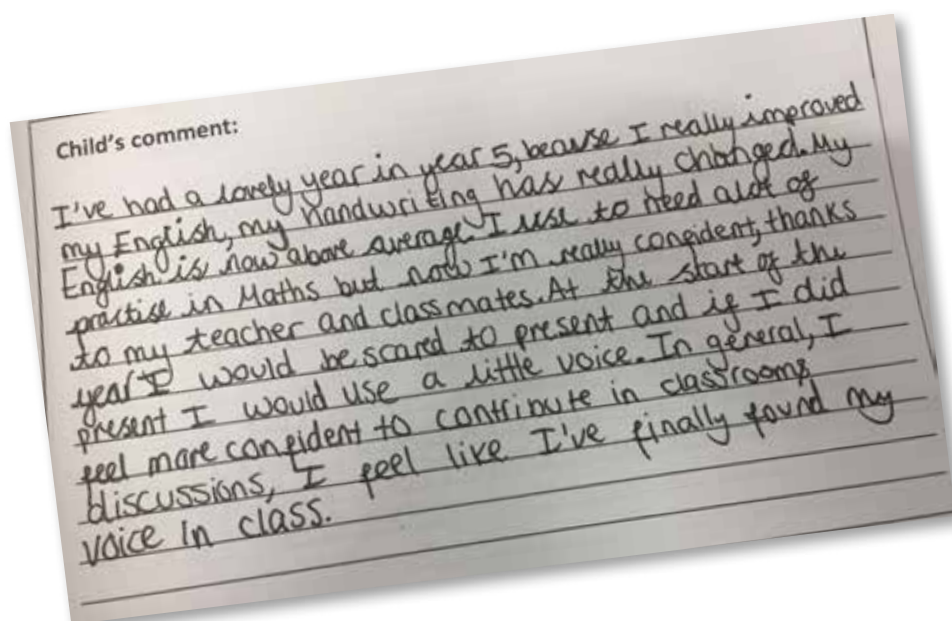 Child's comment:
I've had a lovely year in year 5, beause I really improved
my English, my handwriting has really changed. My
English is now above average I use to need alot of
practise in Maths but now I'm really confident, thanks
to my teacher and classmates. At the start of the
year I would be scared to present and if I did
present I would use a little voice. In general, I
feel more confident to contribute in classrooms
discussions, I feel like I've finally found my
voice in class.